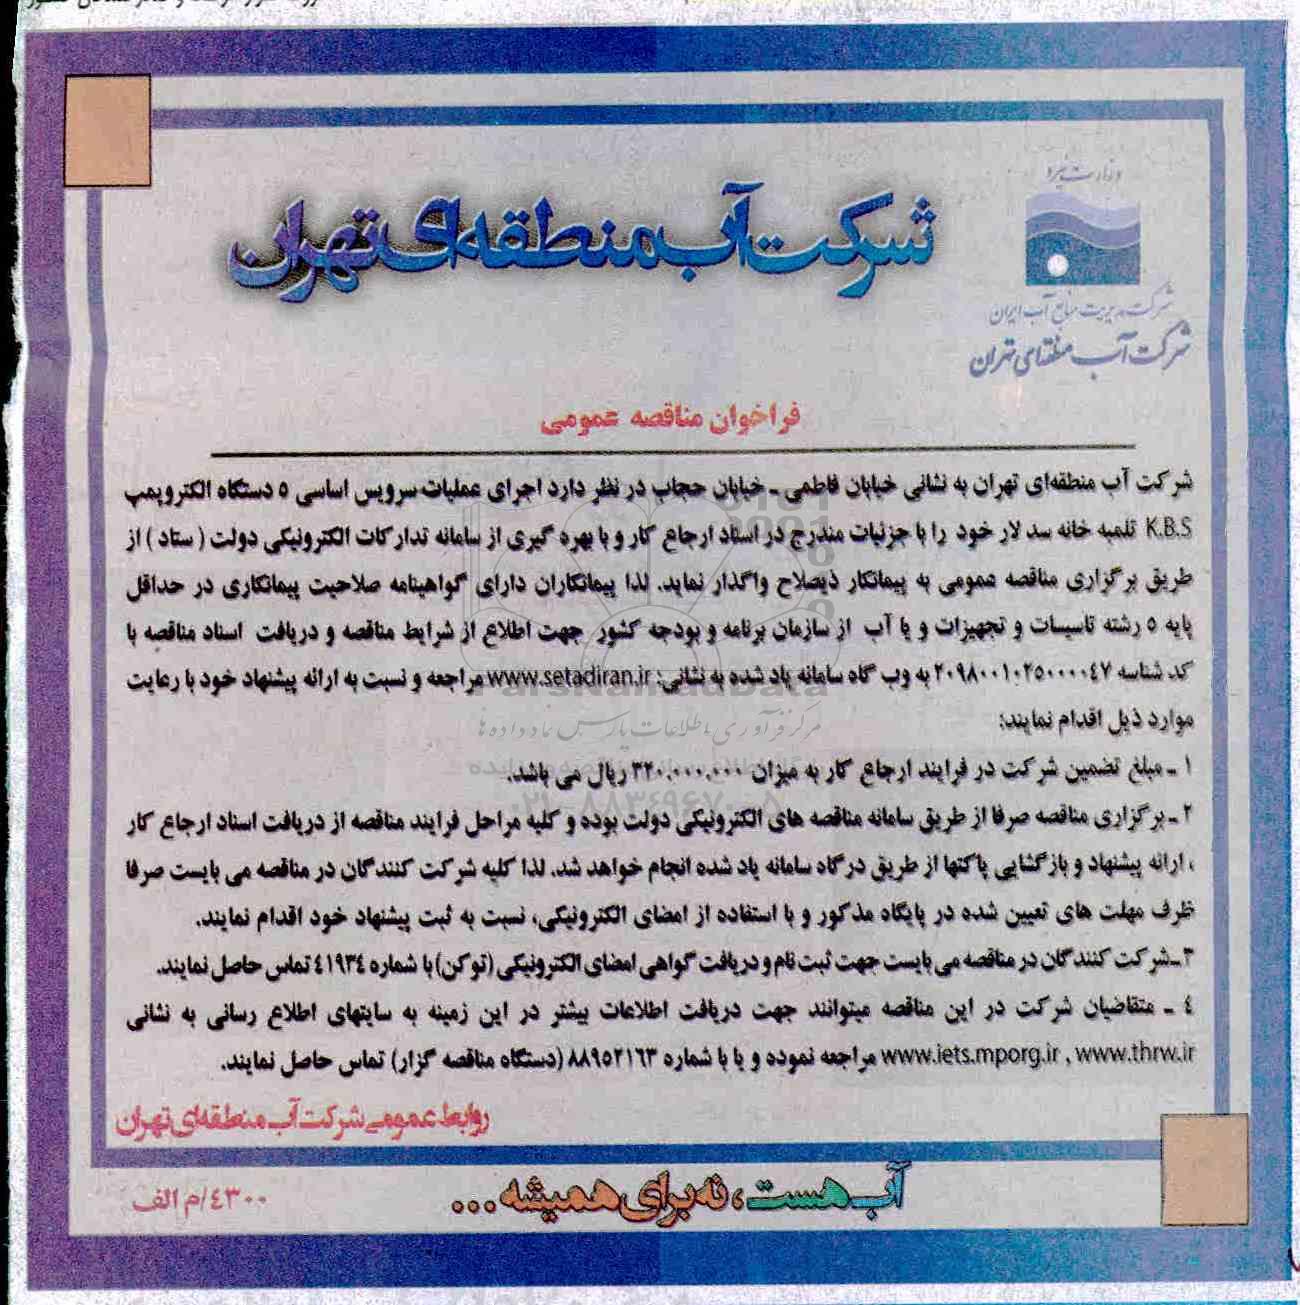 وزارت نیرو
شرکت مدیریت منابع آب ایران
شرکت آب منطقه‌ای تهران
شرکت آب منطقه‌ای تهران
فراخوان مناقصه عمومی
شرکت آب منطقه‌ای تهران به نشانی خیابان فاطمی ـ خیابان حجاب در نظر دارد اجرای عملیات سرویس اساسی ۵ دستگاه الکتروپمپ
K.B.S تلمبه خانه سد لار خود را با جزئیات مندرج در اسناد ارجاع کار و با بهره گیری از سامانه تدارکات الکترونیکی دولت ( ستاد ) از
طریق برگزاری مناقصه عمومی به پیمانکار ذیصلاح واگذار نماید. لذا پیمانکاران دارای گواهینامه صلاحیت پیمانکاری در حداقل
پایه ۵ رشته تاسیسات و تجهیزات و یا آب از سازمان برنامه و بودجه کشور جهت اطلاع از شرایط مناقصه و دریافت اسناد مناقصه با
کد شناسه ۲۰۹۸۰۰۱۰۲۵۰۰۰۰۴۷ به وب گاه سامانه یاد شده به نشانی: www.setadiran.ir مراجعه و نسبت به ارائه پیشنهاد خود با رعایت
موارد ذیل اقدام نمایند:
۱ ـ مبلغ تضمین شرکت در فرایند ارجاع کار به میزان ۳۲۰.۰۰۰.۰۰۰ ریال می باشد.
۲ ـ برگزاری مناقصه صرفا از طریق سامانه مناقصه های الکترونیکی دولت بوده و کلیه مراحل فرایند مناقصه از دریافت اسناد ارجاع کار
، ارائه پیشنهاد و بازگشایی پاکتها از طریق درگاه سامانه یاد شده انجام خواهد شد. لذا کلیه شرکت کنندگان در مناقصه می بایست صرفا
ظرف مهلت های تعیین شده در پایگاه مذکور و با استفاده از امضای الکترونیکی، نسبت به ثبت پیشنهاد خود اقدام نمایند.
۳ـ شرکت کنندگان در مناقصه می بایست جهت ثبت نام و دریافت گواهی امضای الکترونیکی (توکن) با شماره ۴۱۹۳۴ تماس حاصل نمایند.
۴ ـ متقاضیان شرکت در این مناقصه میتوانند جهت دریافت اطلاعات بیشتر در این زمینه به سایتهای اطلاع رسانی به نشانی
www.iets.mporg.ir , www.thrw.ir مراجعه نموده و یا با شماره ۸۸۹۵۲۱۶۳ (دستگاه مناقصه گزار) تماس حاصل نمایند.
روابط عمومی شرکت آب منطقه‌ای تهران
آب هست، نه برای همیشه ...
۴۳۰۰/م الف
ParsNamadData
مرکز فرآوری اطلاعات پارس نماد داده ها
۰۲۱-۸۸۳۴۹۶۷۰-۵